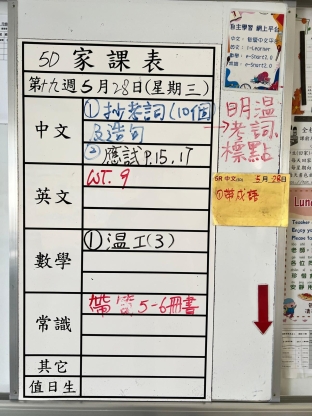 5D 家課表
第十九週 5月28日(星期三)
中文
①抄考詞(10個)
及造句
②應試P.15,17
英文
WT. 9
數學
①溫工(3)
常識
帶常5-6冊書
其它
值日生
明溫
→考詞
標點
自主學習 網上平台
6A 中文 5月28日
①帶成語